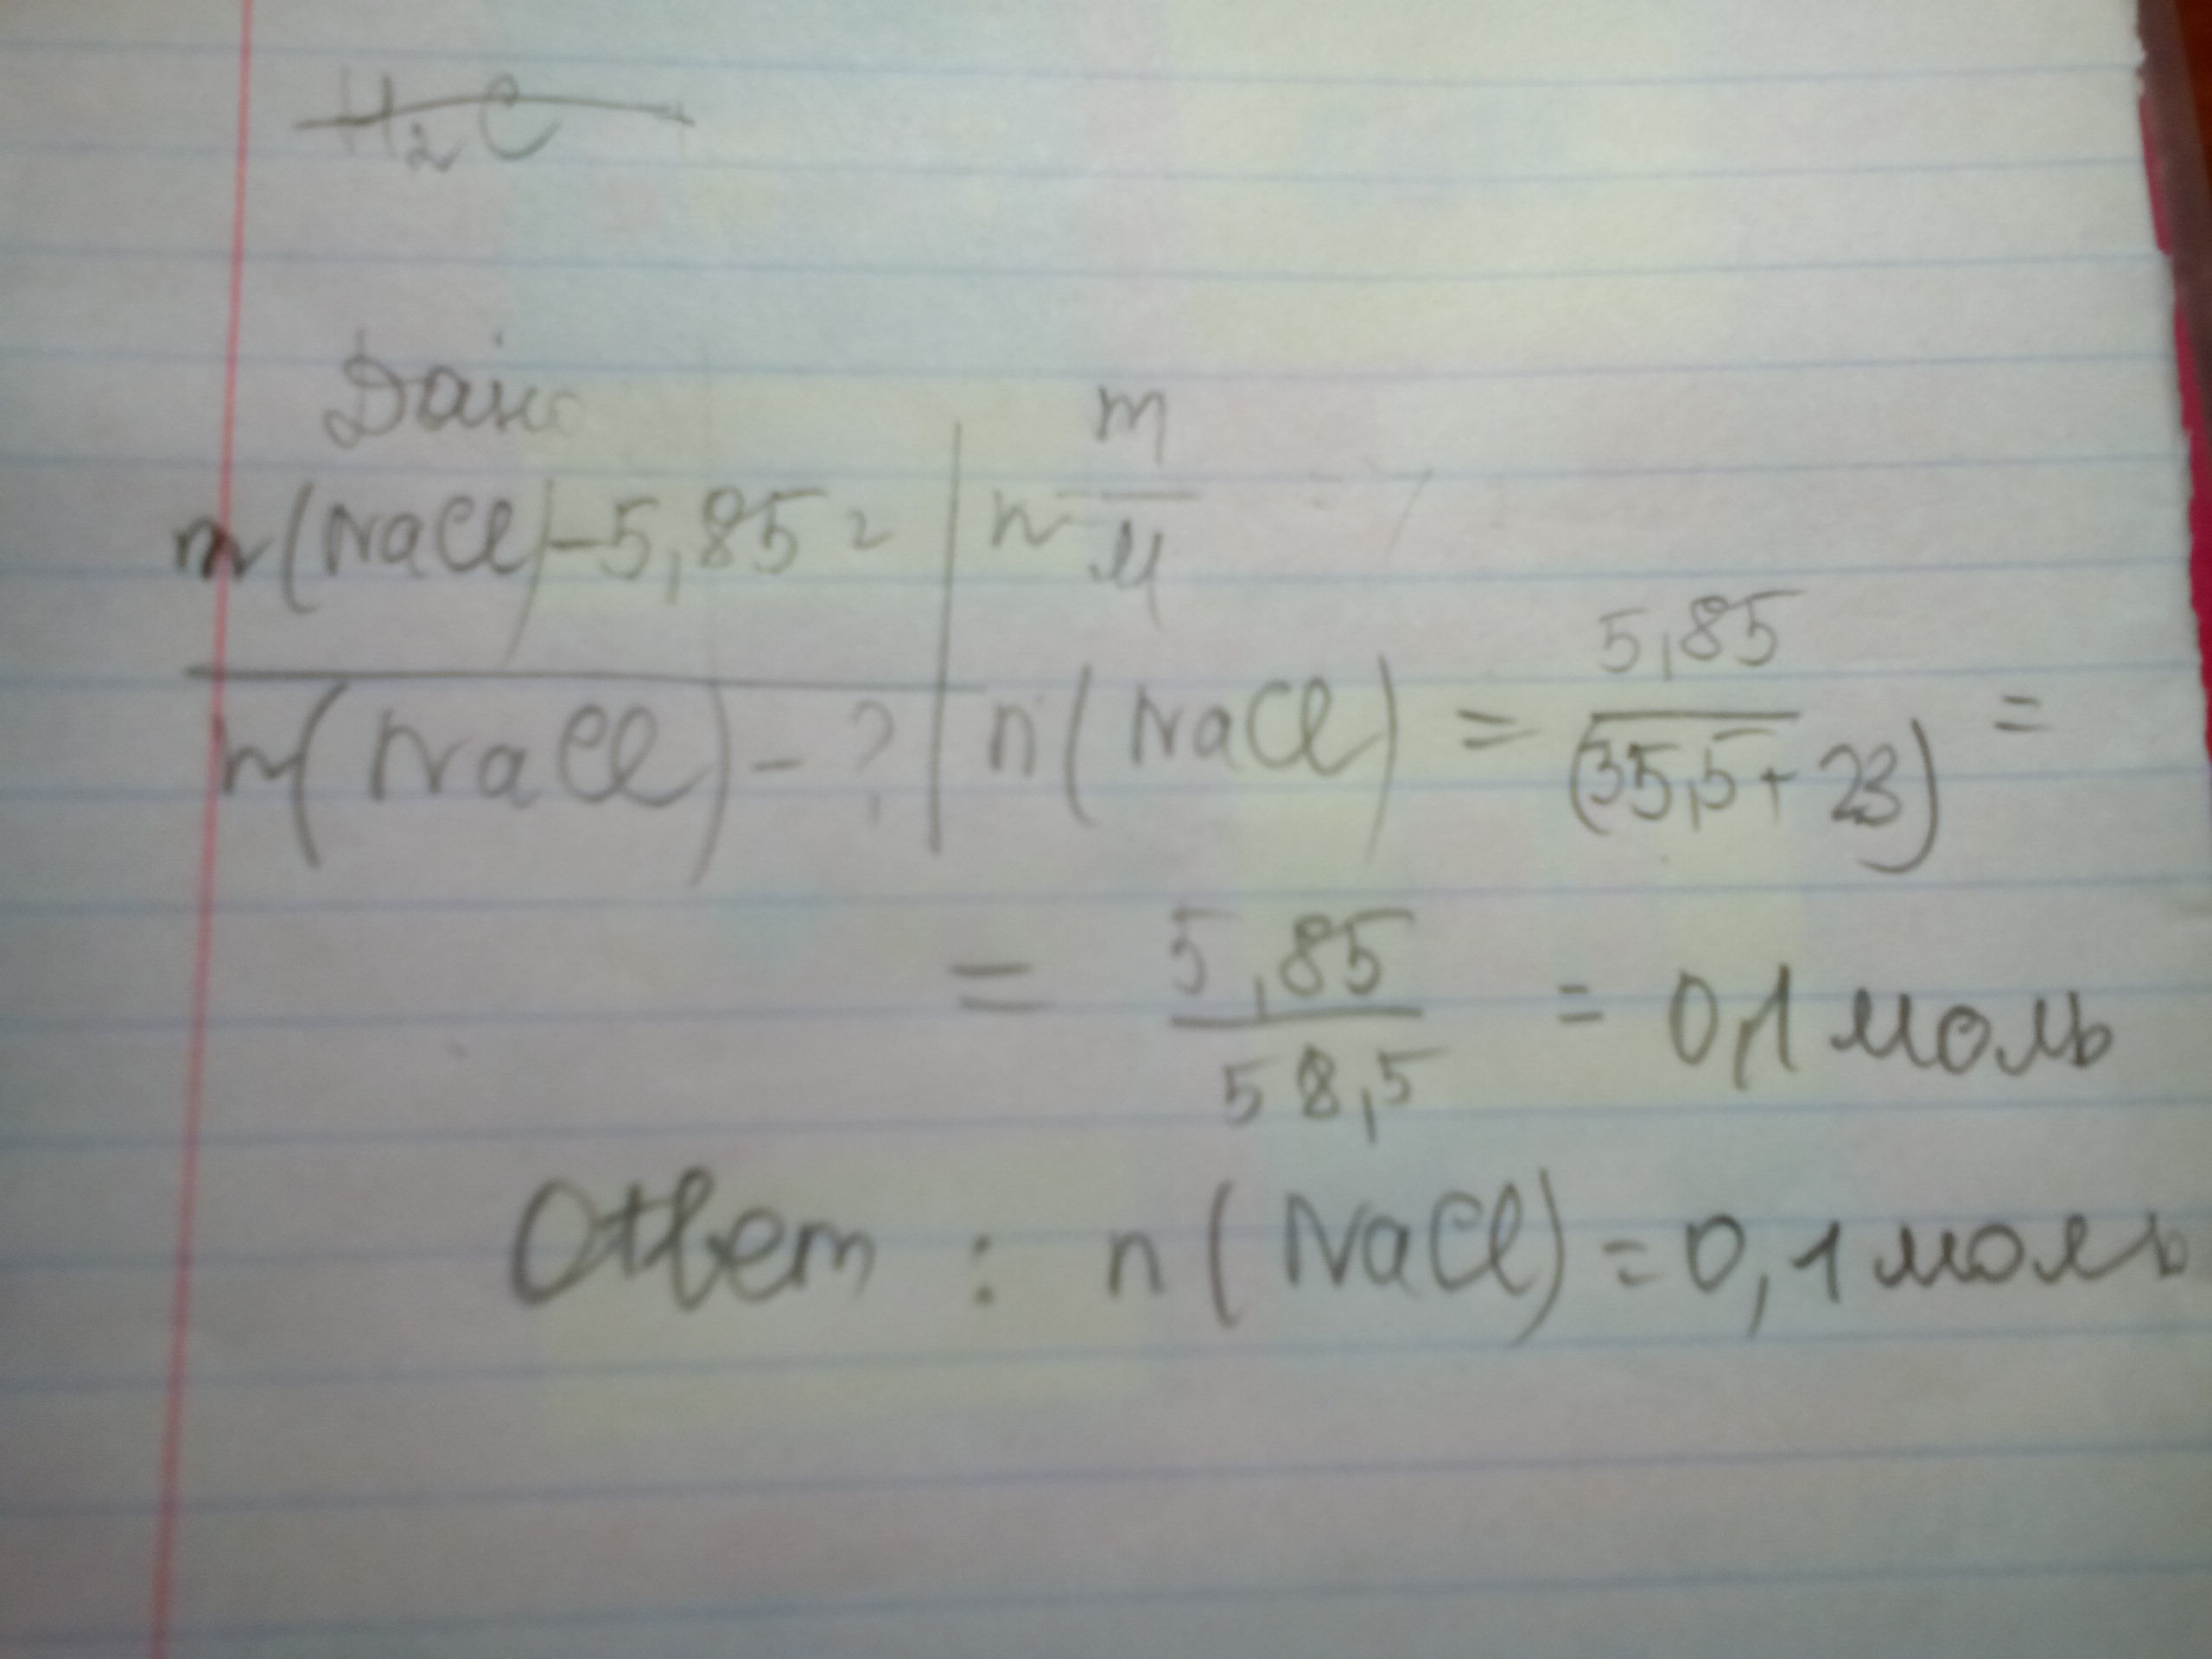 H₂C
Дано
m(NaCl)-5,85 г
n(NaCl)-?
n m/M
n(NaCl) = 5,85/(35,5+23) =
= 5,85/58,5 = 0,1 моль
Ответ: n(NaCl)=0,1 моль